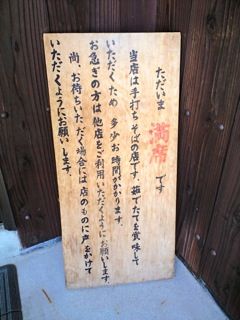 ただいま 満席 です
当店は手打ちそばの店です。茹でたてを賞味して
いただくため 多少お時間がかかります。
お急ぎの方は他店をご利用いただくようにお願いします。
尚、お待ちいただく場合には店のものに戸をかけて
いただくようにお願いします。